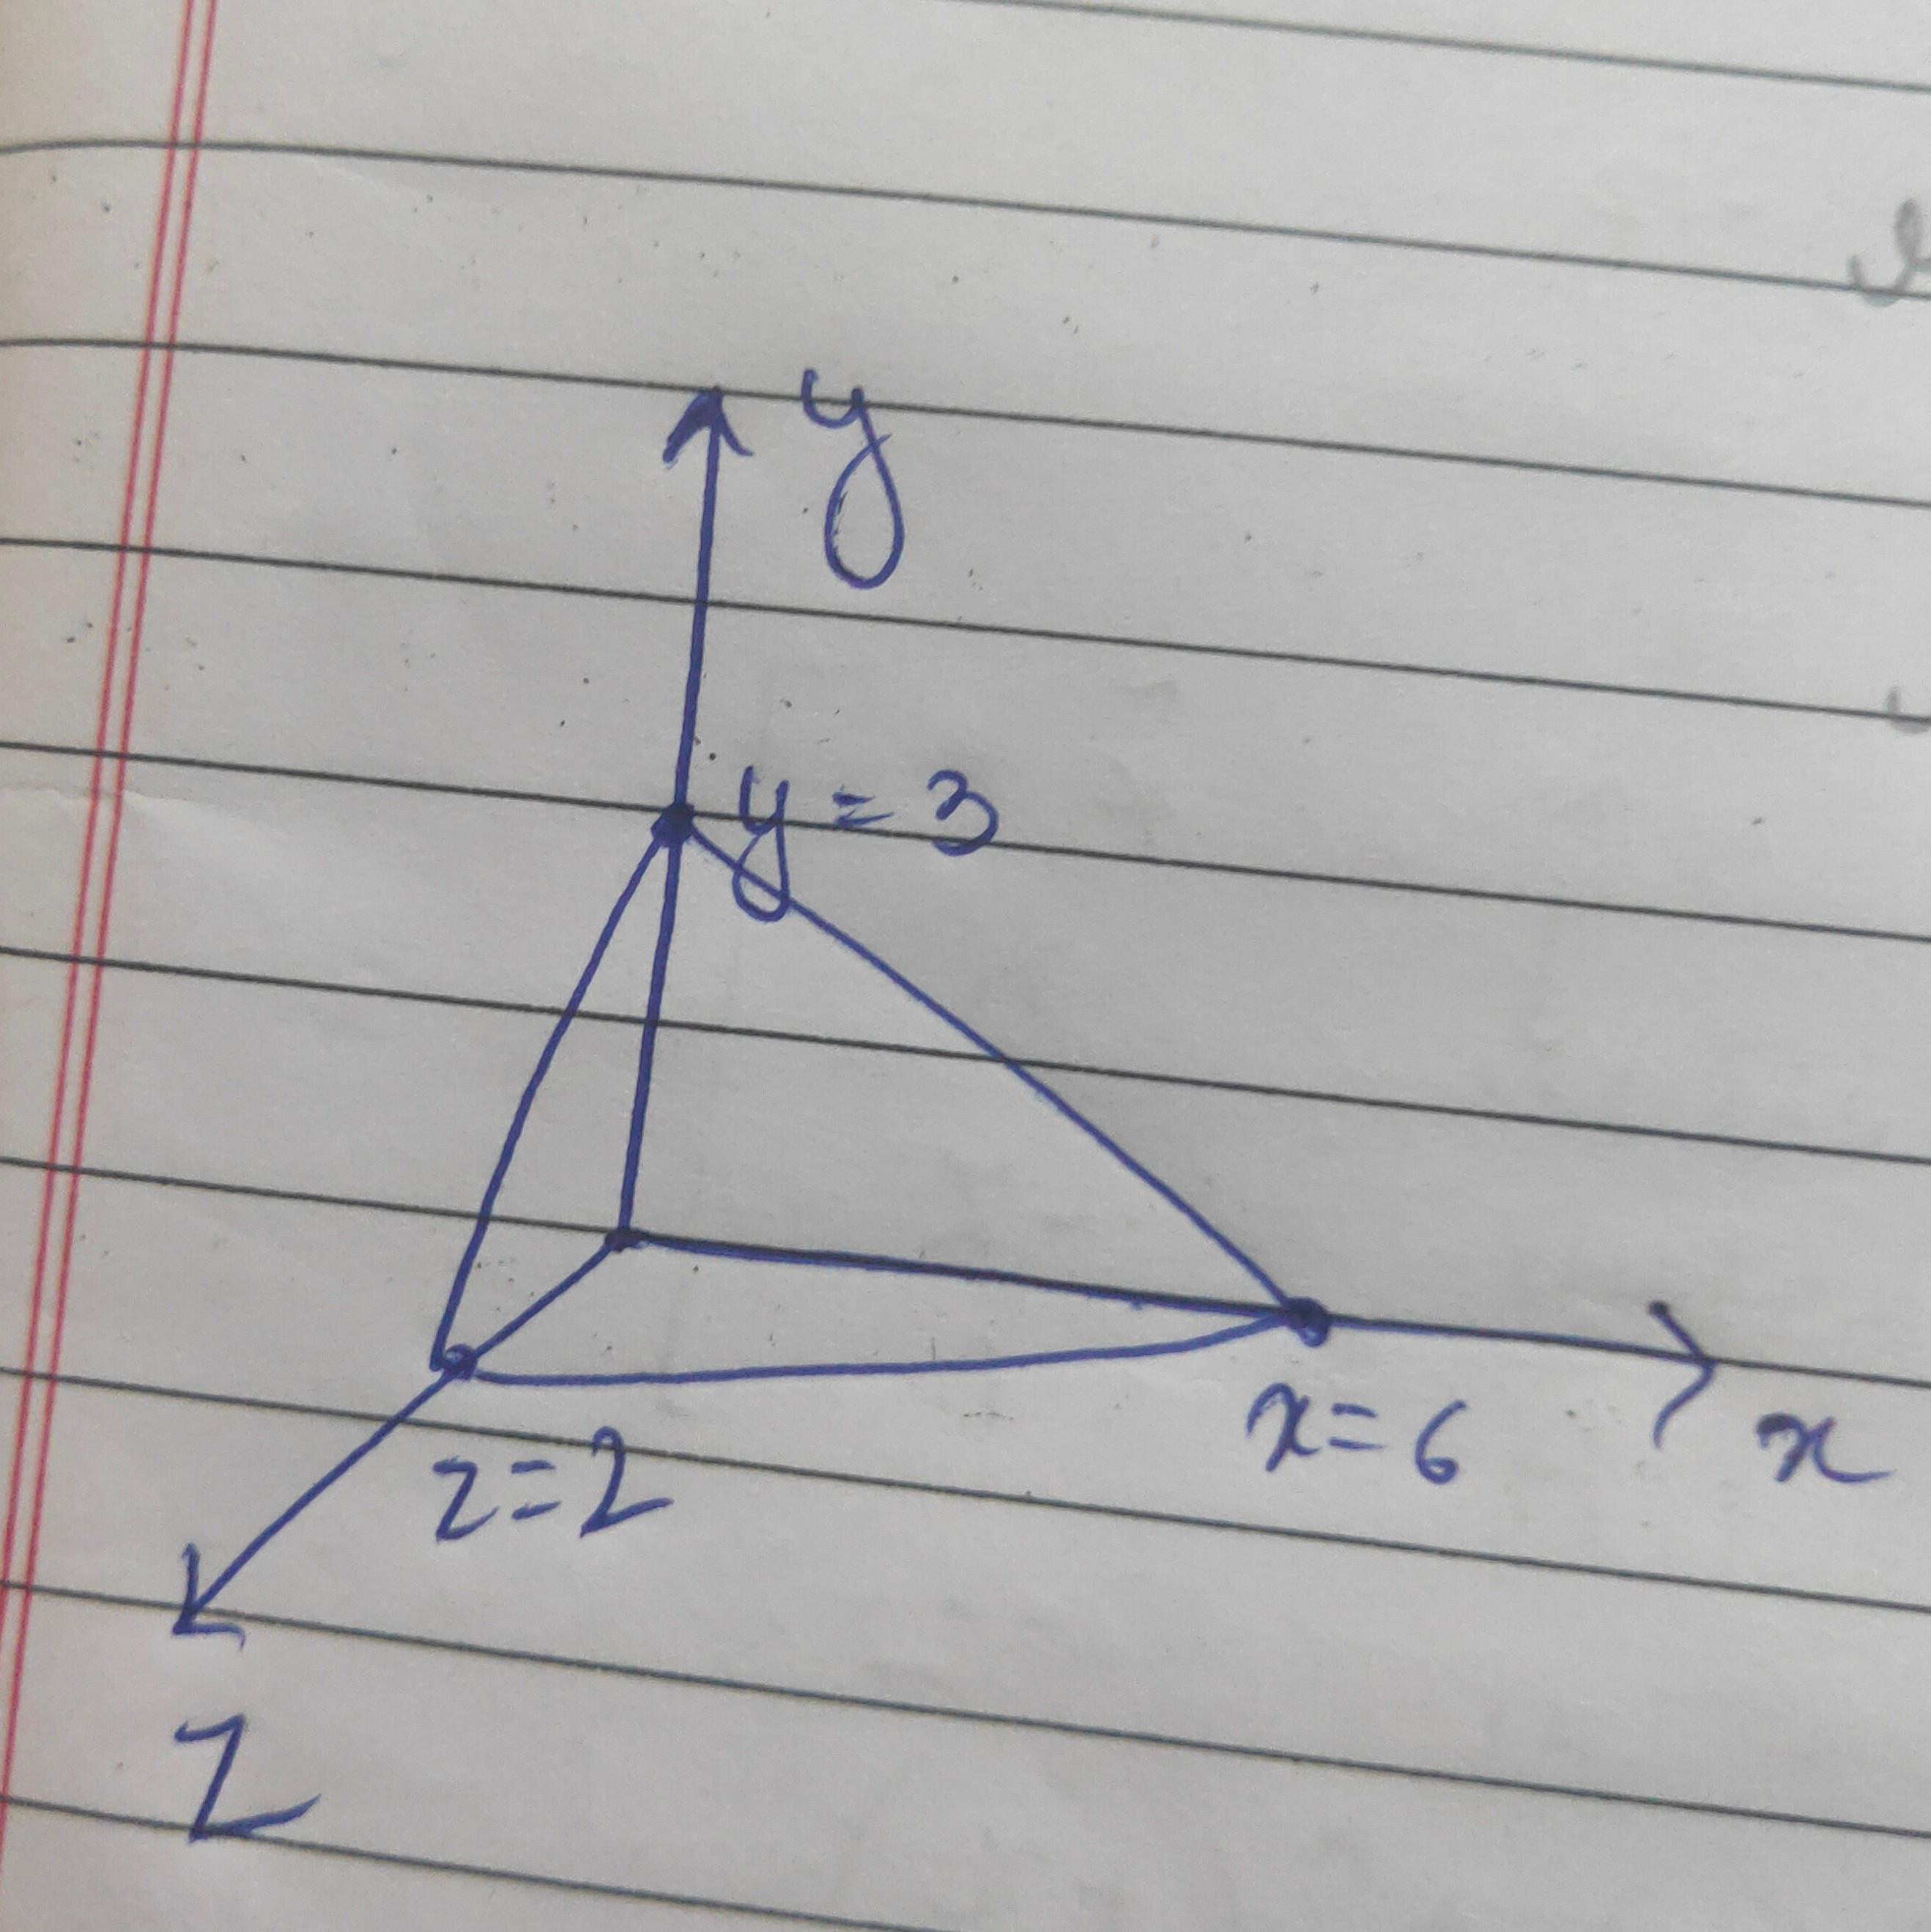 y
y = 3
x = 6
x
z = 2
z